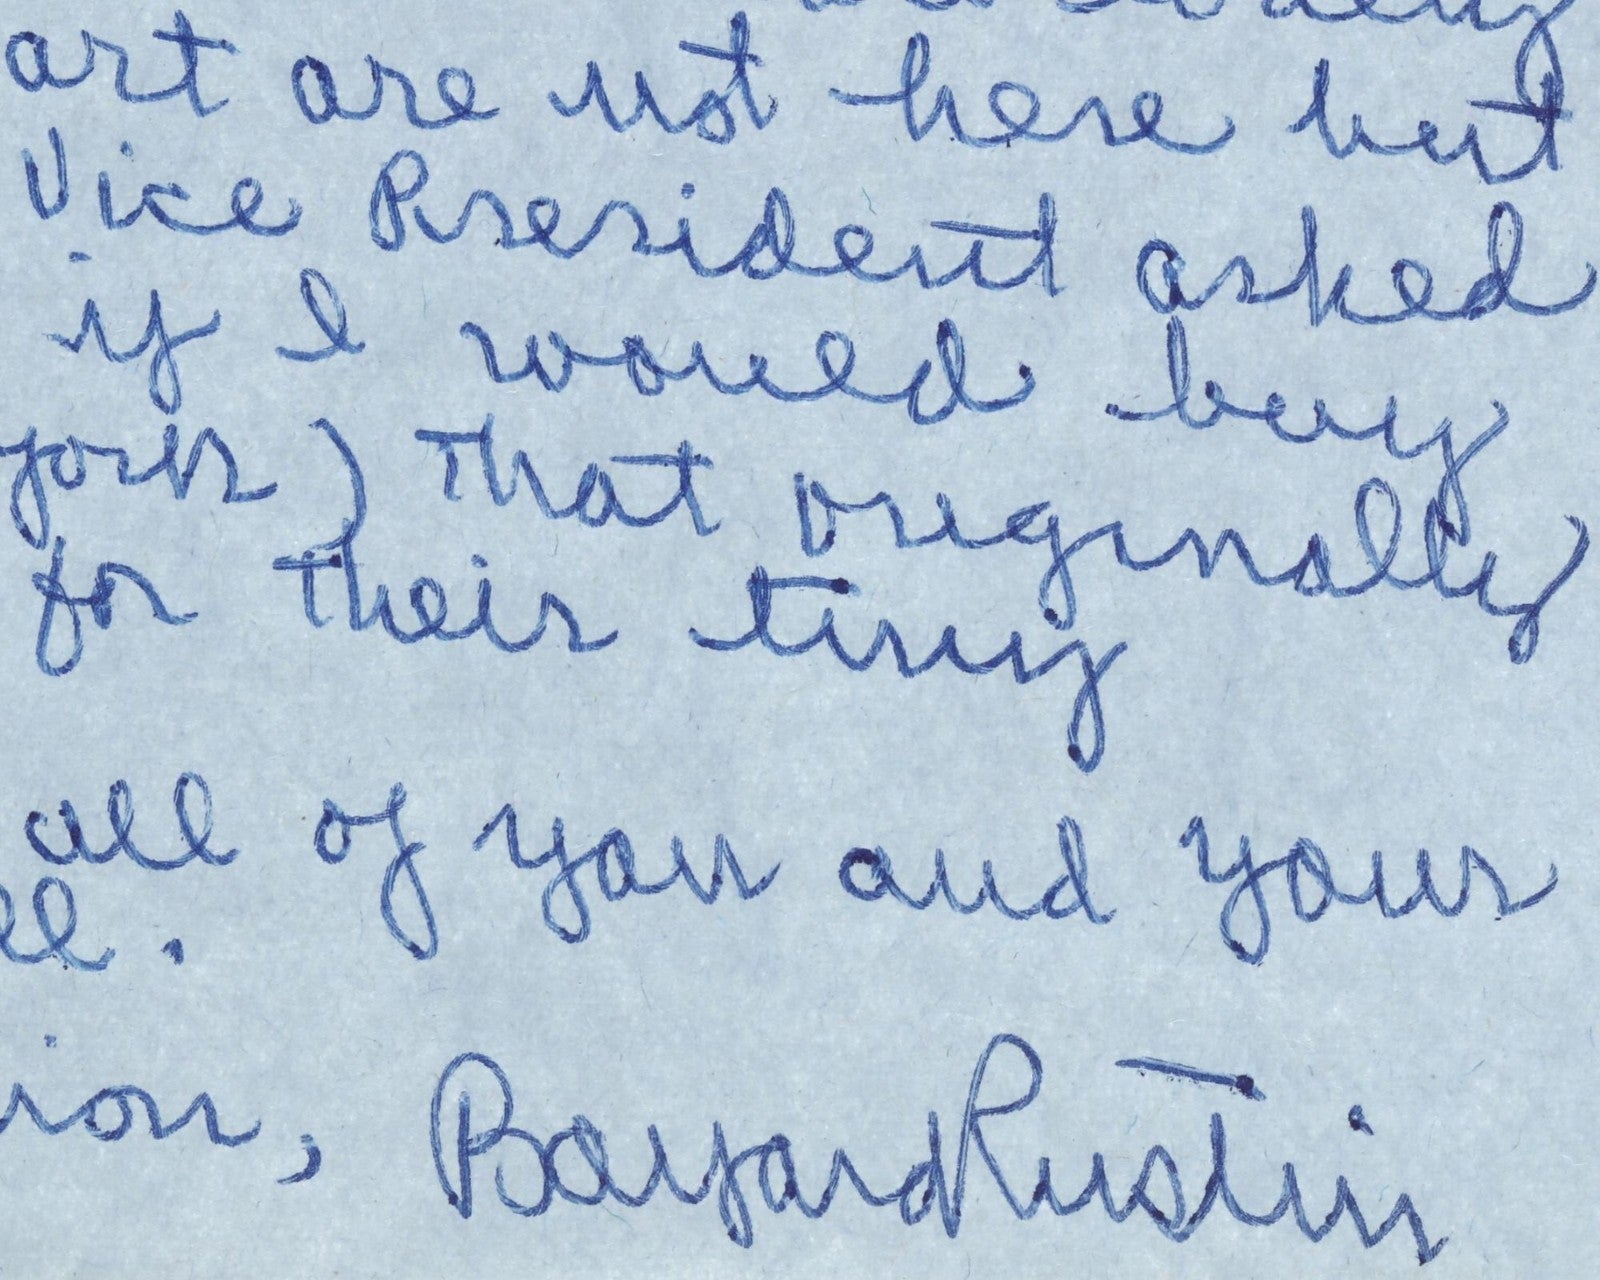 art are not here but
Vice President asked
if I would buy
york) that originally
for their tiny
all of you and your
ll.
ion, Bayard Rustin